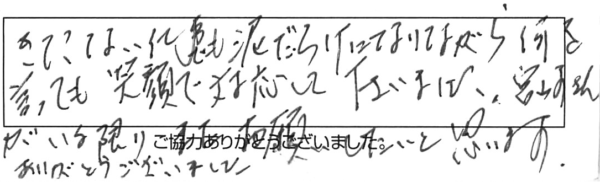 きてこてない仕事も泥だらけになりながら何を
言っても笑顔で対応して下さいました。宮山さん
がいる限り またお願いしたいと思います。
ご協力ありがとうございました。
ありがとうございました